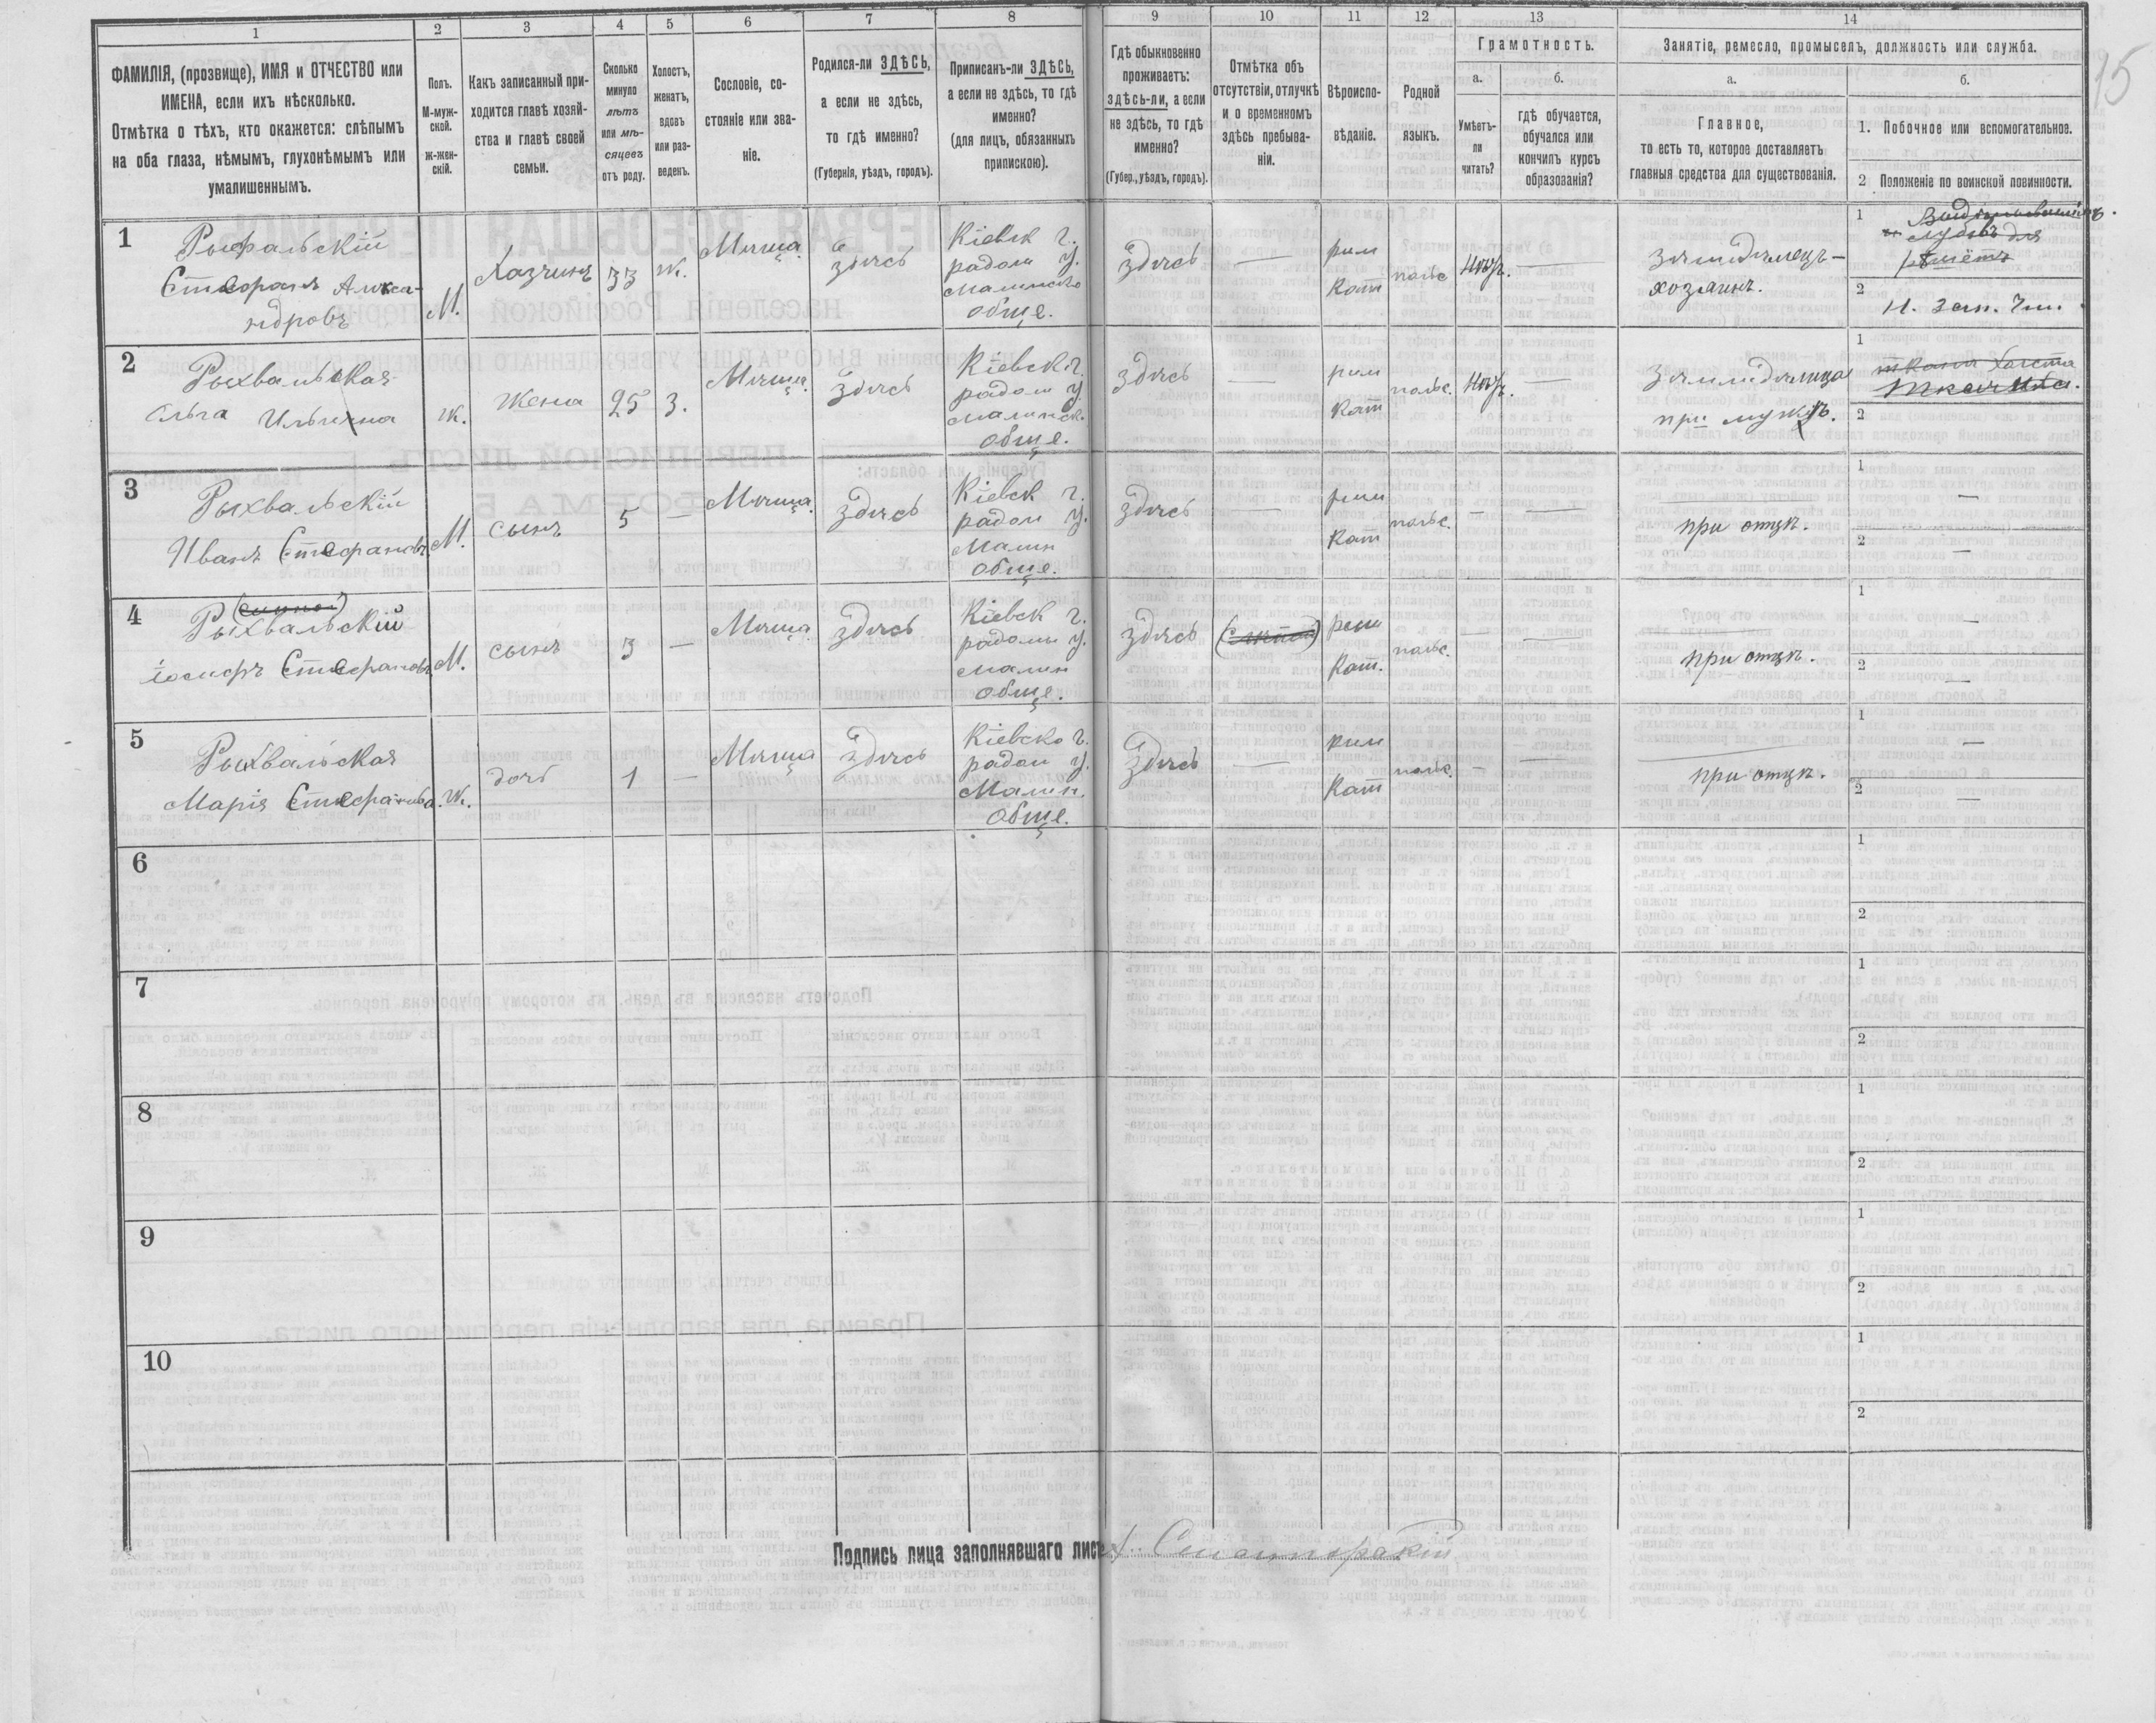 15
1
ФАМИЛІЯ, (прозвище), ИМЯ и ОТЧЕСТВО или
ИМЕНА, если ихъ нѣсколько.
Отмѣтка о тѣхъ, кто окажется: слѣпымъ
на оба глаза, нѣмымъ, глухонѣмымъ или
умалишеннымъ.
2
Полъ.
М-муж-
ской.
ж-жен-
скій.
3
Какъ записанный при-
ходится главѣ хозяй-
ства и главѣ своей
семьи.
4
Сколько
минуло
лѣтъ
или мѣ-
сяцевъ
отъ роду.
5
Холостъ,
женатъ,
вдовъ
или раз-
веденъ.
6
Сословіе, со-
стояніе или зва-
ніе.
7
Родился-ли ЗДѢСЬ,
а если не здѣсь,
то гдѣ именно?
(Губернія, уѣздъ, городъ).
8
Приписанъ-ли ЗДѢСЬ,
а если не здѣсь, то гдѣ
именно?
(для лицъ, обязанныхъ
припискою).
9
Гдѣ обыкновенно
проживаетъ:
здѣсь-ли, а если
не здѣсь, то гдѣ
именно?
(Губер., уѣздъ, городъ).
10
Отмѣтка объ
отсутствіи, отлучкѣ
и о временномъ
здѣсь пребыва-
ніи.
11
Вѣроиспо-
вѣданіе.
12
Родной
языкъ.
13
Грамотность.
а.
Умѣетъ-
ли
читать?
б.
гдѣ обучается,
обучался или
кончилъ курсъ
образованія?
14
Занятіе, ремесло, промыселъ, должность или служба.
а.
Главное,
то есть то, которое доставляетъ
главныя средства для существованія.
б.
1. Побочное или вспомогательное.
2 Положеніе по воинской повинности.
1
Рыхвальскій
Стефанъ Алекса-
ндровъ
М.
Хазяинъ
33
Ж.
Мѣща.
здѣсь
Кіевск г.
радом у.
Малинско
обще.
здѣсь
—
рим
Кат
польс
нѣтъ.
—
Земледѣлецъ -
хозяинъ.
1
2
Н. Зап. Чин.
2
Рыхвальская
Ольга Ильична
Ж.
Жена
25
З.
Мѣща.
здѣсь
Кіевск г.
радом у.
Малинск.
обще.
здѣсь
—
рим
Кат
польс.
нѣтъ.
—
Земледѣлица
при мужѣ.
1
ткала холста
2
3
Рыхвальскій
Иванъ Стефановъ
М.
сынъ
5
—
Мѣща.
здѣсь
Кіевск г.
радом у.
Малин
обще.
здѣсь
—
рим
Кат
польс.
—
—
при отцѣ.
1
—
2
—
4
Рыхвальскій
Іосифъ Стефановъ
М.
сынъ
3
—
Мѣща
здѣсь
Кіевск г.
радом у.
Малин
обще.
здѣсь
рим
Кат.
польс.
—
—
при отцѣ.
1
—
2
—
5
Рыхвальская
Марія Стефанова.
Ж.
дочь
1
—
Мѣща
здѣсь
Кіевско г.
радом у.
Малин.
обще.
здѣсь
—
рим
Кат
польс.
—
—
при отцѣ.
1
—
2
—
6
1
2
7
1
2
8
1
2
9
1
2
10
1
2
Подпись лица заполнявшаго листъ